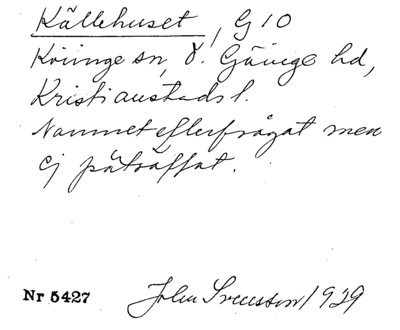 Källehuset, G 10
Kviinge sn, Ö. Göinge hd,
Kristianstads l.
Namnet efterfrågat men
ej påträffat.
Nr 5427 John Svensson 1929